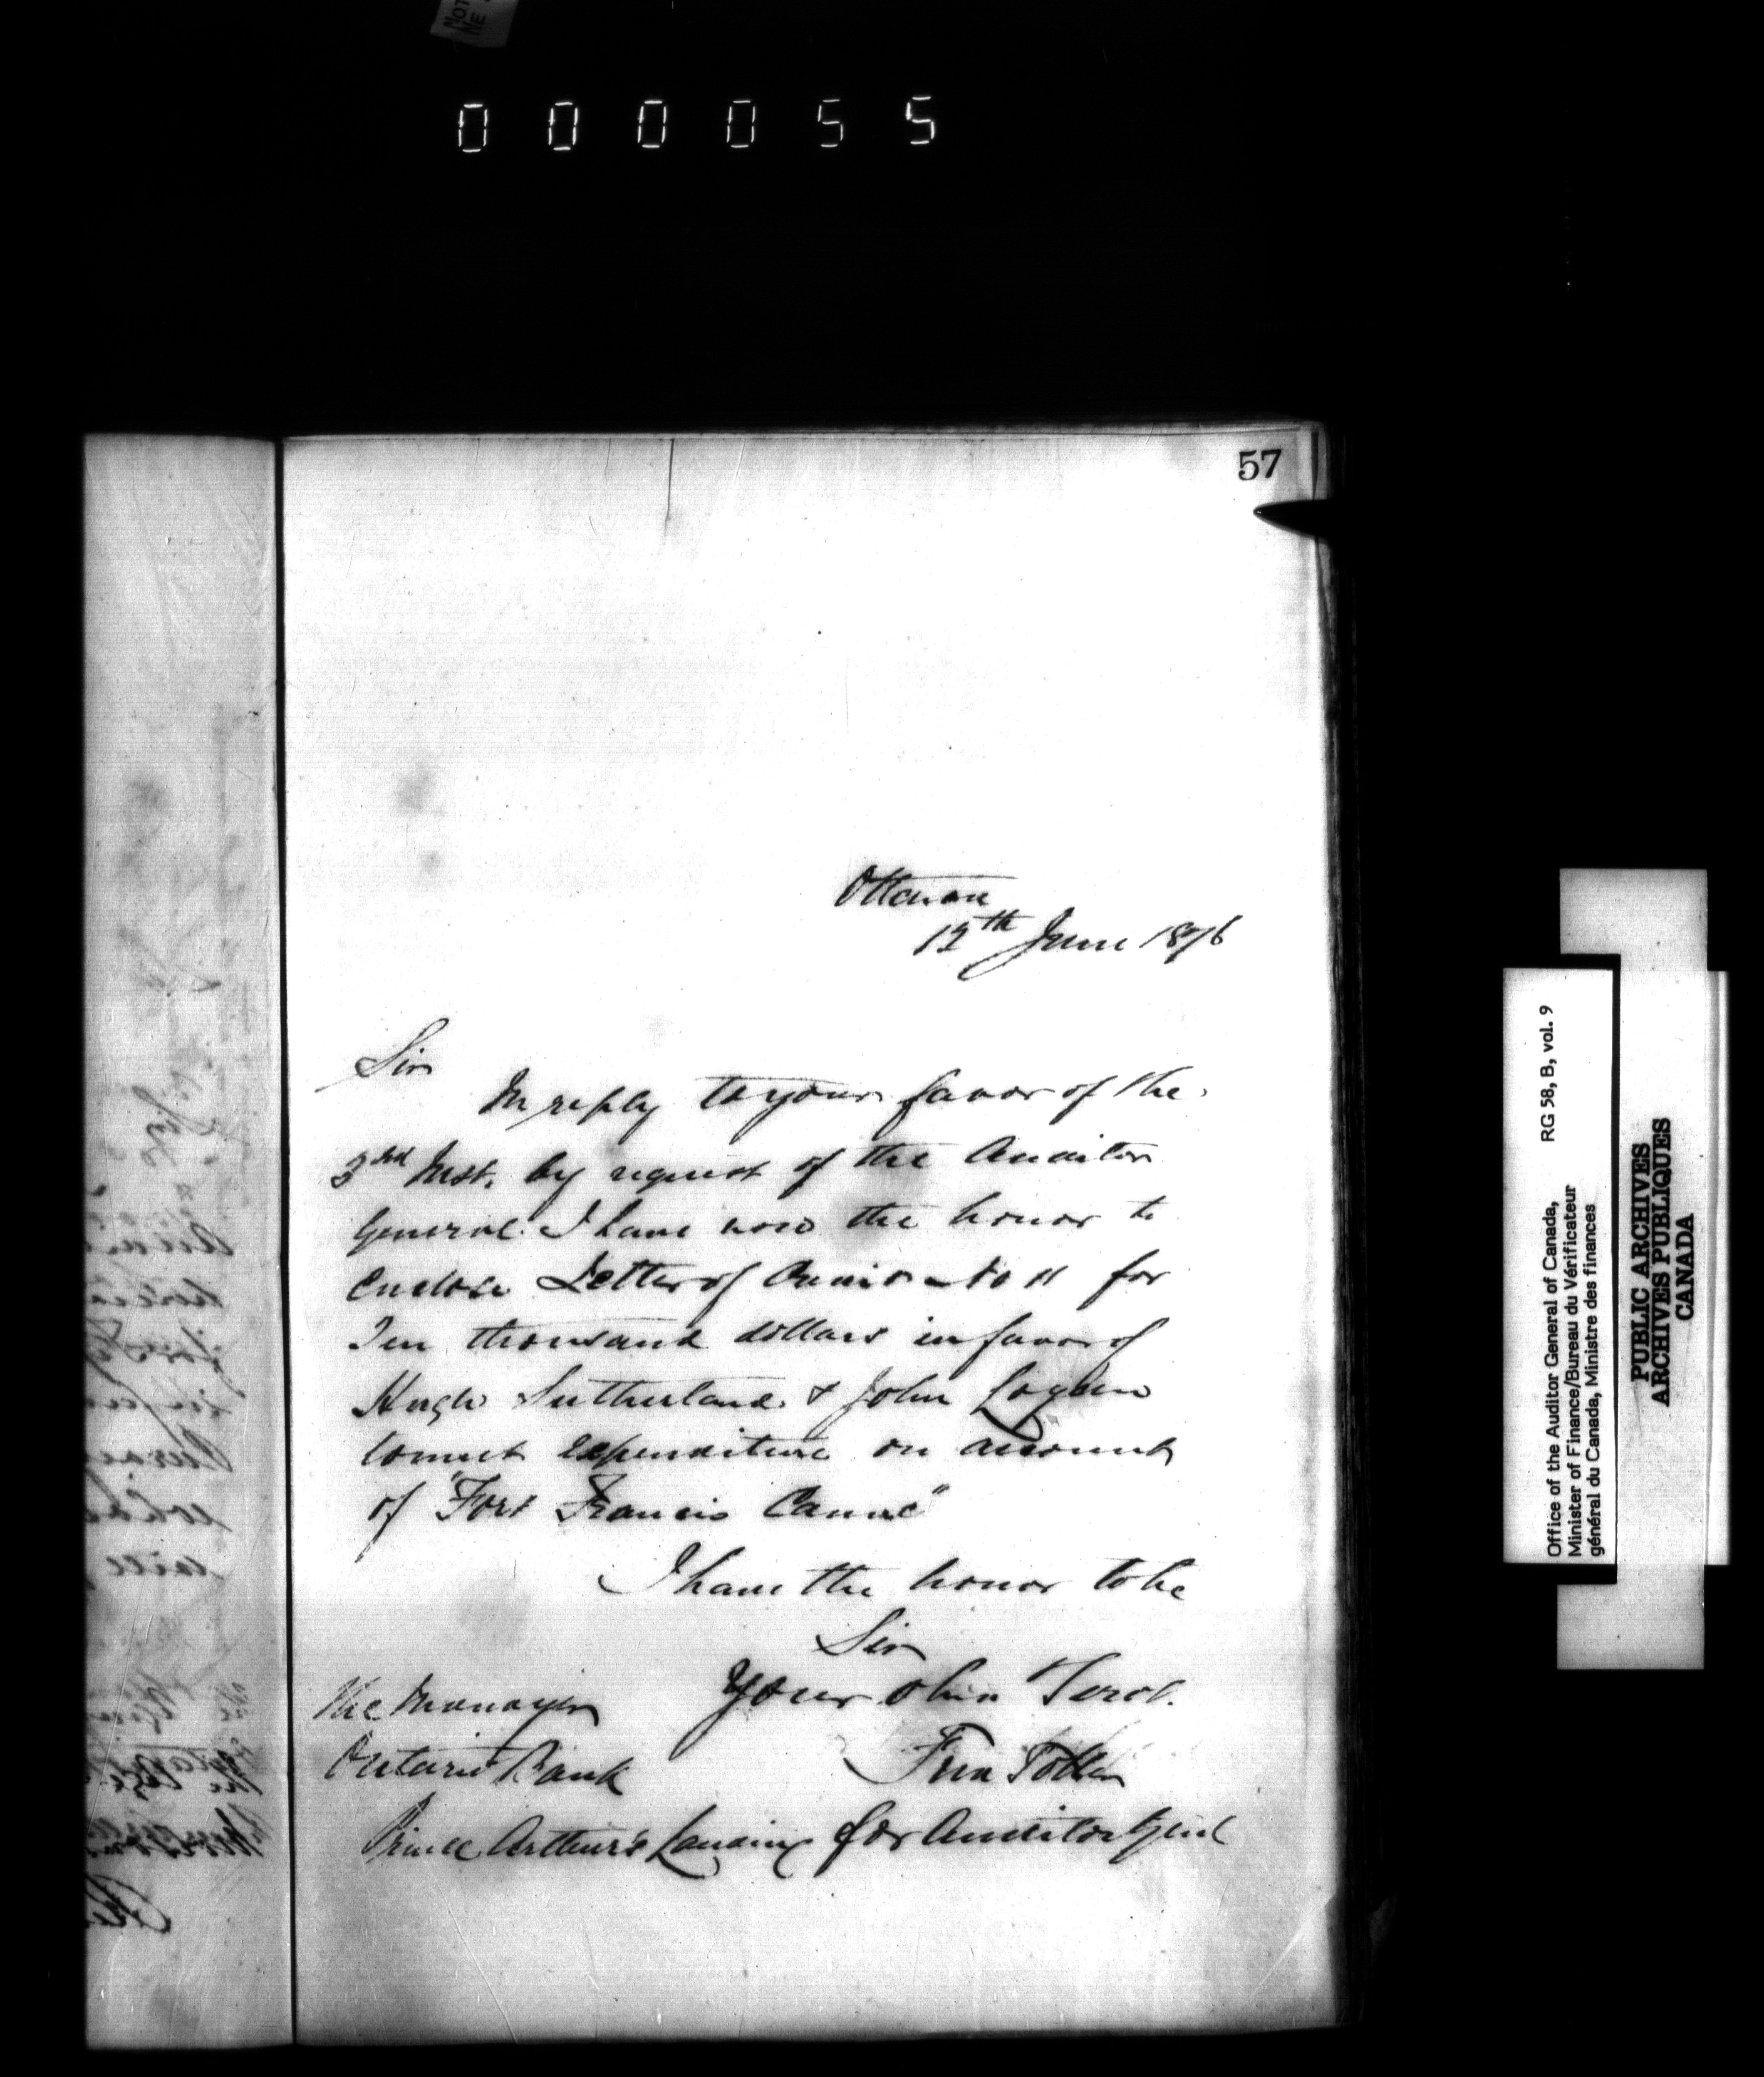 000055
57
Ottawa
12th June 1876
Sir
In reply to your favor of the
3rd Inst. by request of the Auditor
General I have now the honor to
enclose Letter of Credit No 11 for
Ten thousand dollars in favor of
Hugh Sutherland & John Logan
to meet expenditure on account
of "Fort Francis Canal"
I have the honor to be
Sir
Your Obdn Servt.
The Manager
Ontario Bank
Prince Arthur's Landing
for Auditor Genl
Office of the Auditor General of Canada, RG 58, B, vol. 9
Minister of Finance/Bureau du Vérificateur
général du Canada, Ministre des finances
PUBLIC ARCHIVES
ARCHIVES PUBLIQUES
CANADA